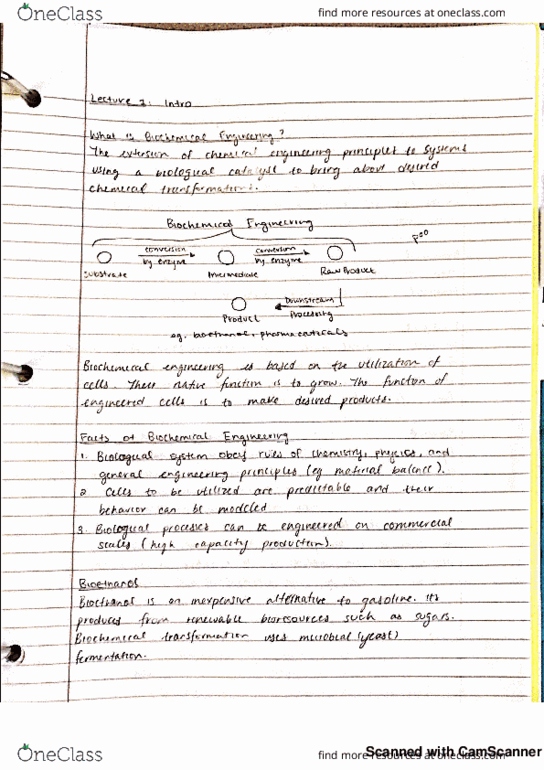 OneClass
find more resources at oneclass.com
Lecture 1: Intro
What is Biochemical Engineering?
The extension of chemical engineering principles to systems
using a biological catalyst to bring about desired
chemical transformations.
Biochemical Engineering
Substrate
conversion
by enzyme
Intermediate
conversion
by enzyme
Raw Product
Product
Downstream
Processing
eg. bioethanol, pharmaceuticals
Biochemical engineering is based on the utilization of
cells. Their native function is to grow. The function of
engineered cells is to make desired products.
Facts of Biochemical Engineering
1. Biological system obey rules of chemistry, physics, and
general engineering principles (eg material balance).
2. Cells to be utilized are predictable and their
behavior can be modeled
3. Biological processes can be engineered on commercial
scales (high capacity production).
Bioethanol
Bioethanol is an inexpensive alternative to gasoline. Its
produces from renewable bioresources such as sugars.
Biochemical transformation uses microbial (yeast)
fermentation.
OneClass
find more resources at oneclass.com
Scanned with CamScanner